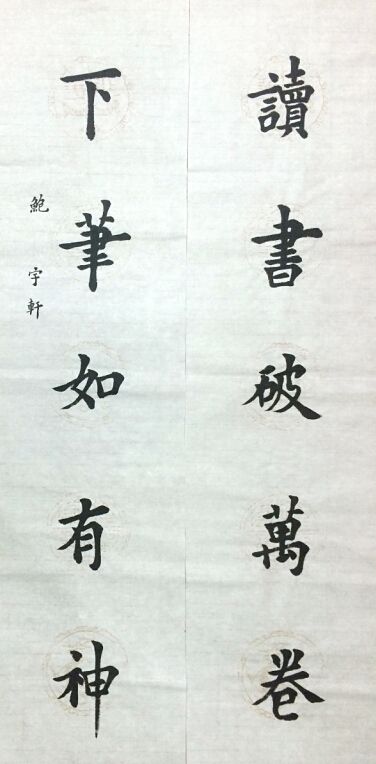 讀書破萬卷
下筆如有神
鮑宇軒